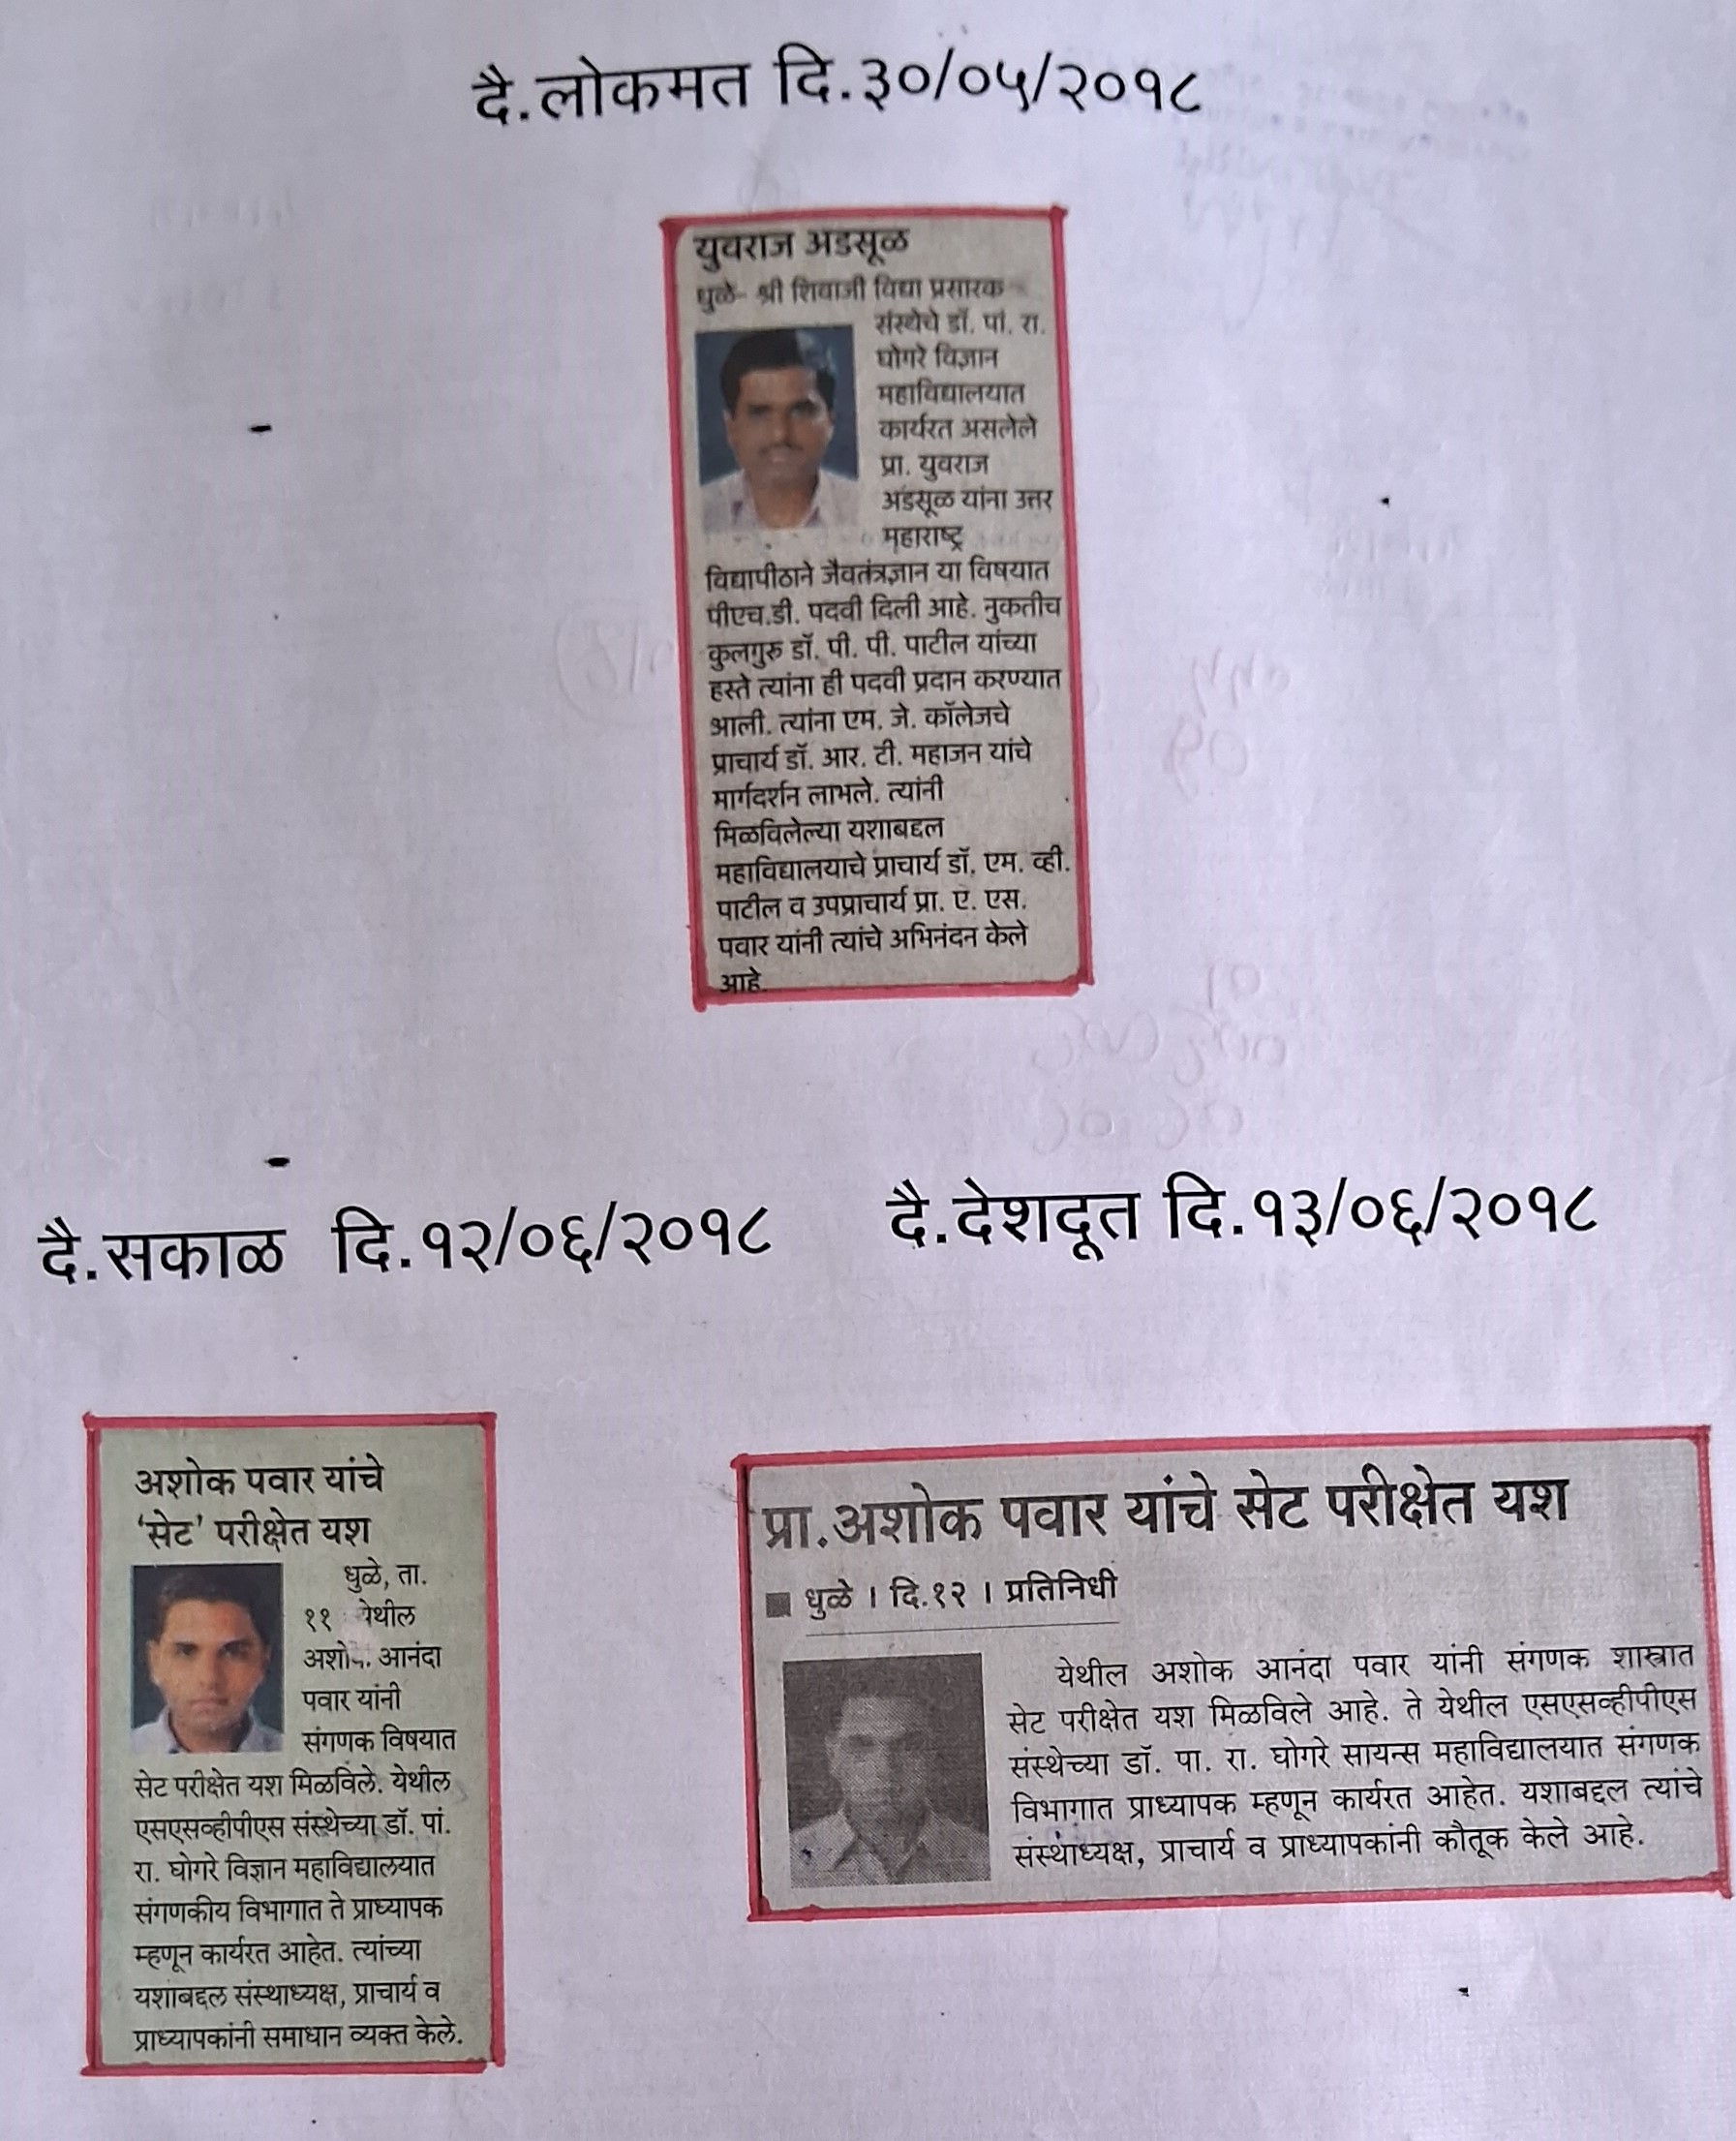 दै.लोकमत दि.३०/०५/२०१८
युवराज अडसूळ
धुळे- श्री शिवाजी विद्या प्रसारक
संस्थेचे डॉ. पां. रा.
घोगरे विज्ञान
महाविद्यालयात
कार्यरत असलेले
प्रा. युवराज
अडसूळ यांना उत्तर
महाराष्ट्र
विद्यापीठाने जैवतंत्रज्ञान या विषयात
पीएच.डी. पदवी दिली आहे. नुकतीच
कुलगुरु डॉ. पी. पी. पाटील यांच्या
हस्ते त्यांना ही पदवी प्रदान करण्यात
आली. त्यांना एम. जे. कॉलेजचे
प्राचार्य डॉ. आर. टी. महाजन यांचे
मार्गदर्शन लाभले. त्यांनी
मिळविलेल्या यशाबद्दल
महाविद्यालयाचे प्राचार्य डॉ. एम. व्ही.
पाटील व उपप्राचार्य प्रा. ए. एस.
पवार यांनी त्यांचे अभिनंदन केले
आहे.
दै.सकाळ दि.१२/०६/२०१८
अशोक पवार यांचे
'सेट' परीक्षेत यश
धुळे, ता.
११ येथील
आनंदा
पवार यांनी
संगणक विषयात
सेट परीक्षेत यश मिळविले. येथील
एसएसव्हीपीएस संस्थेच्या डॉ. पां.
रा. घोगरे विज्ञान महाविद्यालयात
संगणकीय विभागात ते प्राध्यापक
म्हणून कार्यरत आहेत. त्यांच्या
यशाबद्दल संस्थाध्यक्ष, प्राचार्य व
प्राध्यापकांनी समाधान व्यक्त केले.
दै.देशदूत दि.१३/०६/२०१८
प्रा.अशोक पवार यांचे सेट परीक्षेत यश
■ धुळे । दि.१२ । प्रतिनिधी
येथील अशोक आनंदा पवार यांनी संगणक शास्त्रात
सेट परीक्षेत यश मिळविले आहे. ते येथील एसएसव्हीपीएस
संस्थेच्या डॉ. पा. रा. घोगरे सायन्स महाविद्यालयात संगणक
विभागात प्राध्यापक म्हणून कार्यरत आहेत. यशाबद्दल त्यांचे
संस्थाध्यक्ष, प्राचार्य व प्राध्यापकांनी कौतूक केले आहे.